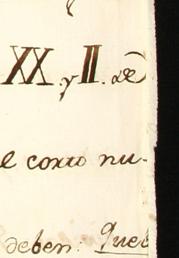 XX. y II. de
e corto nu-
deben: Quel